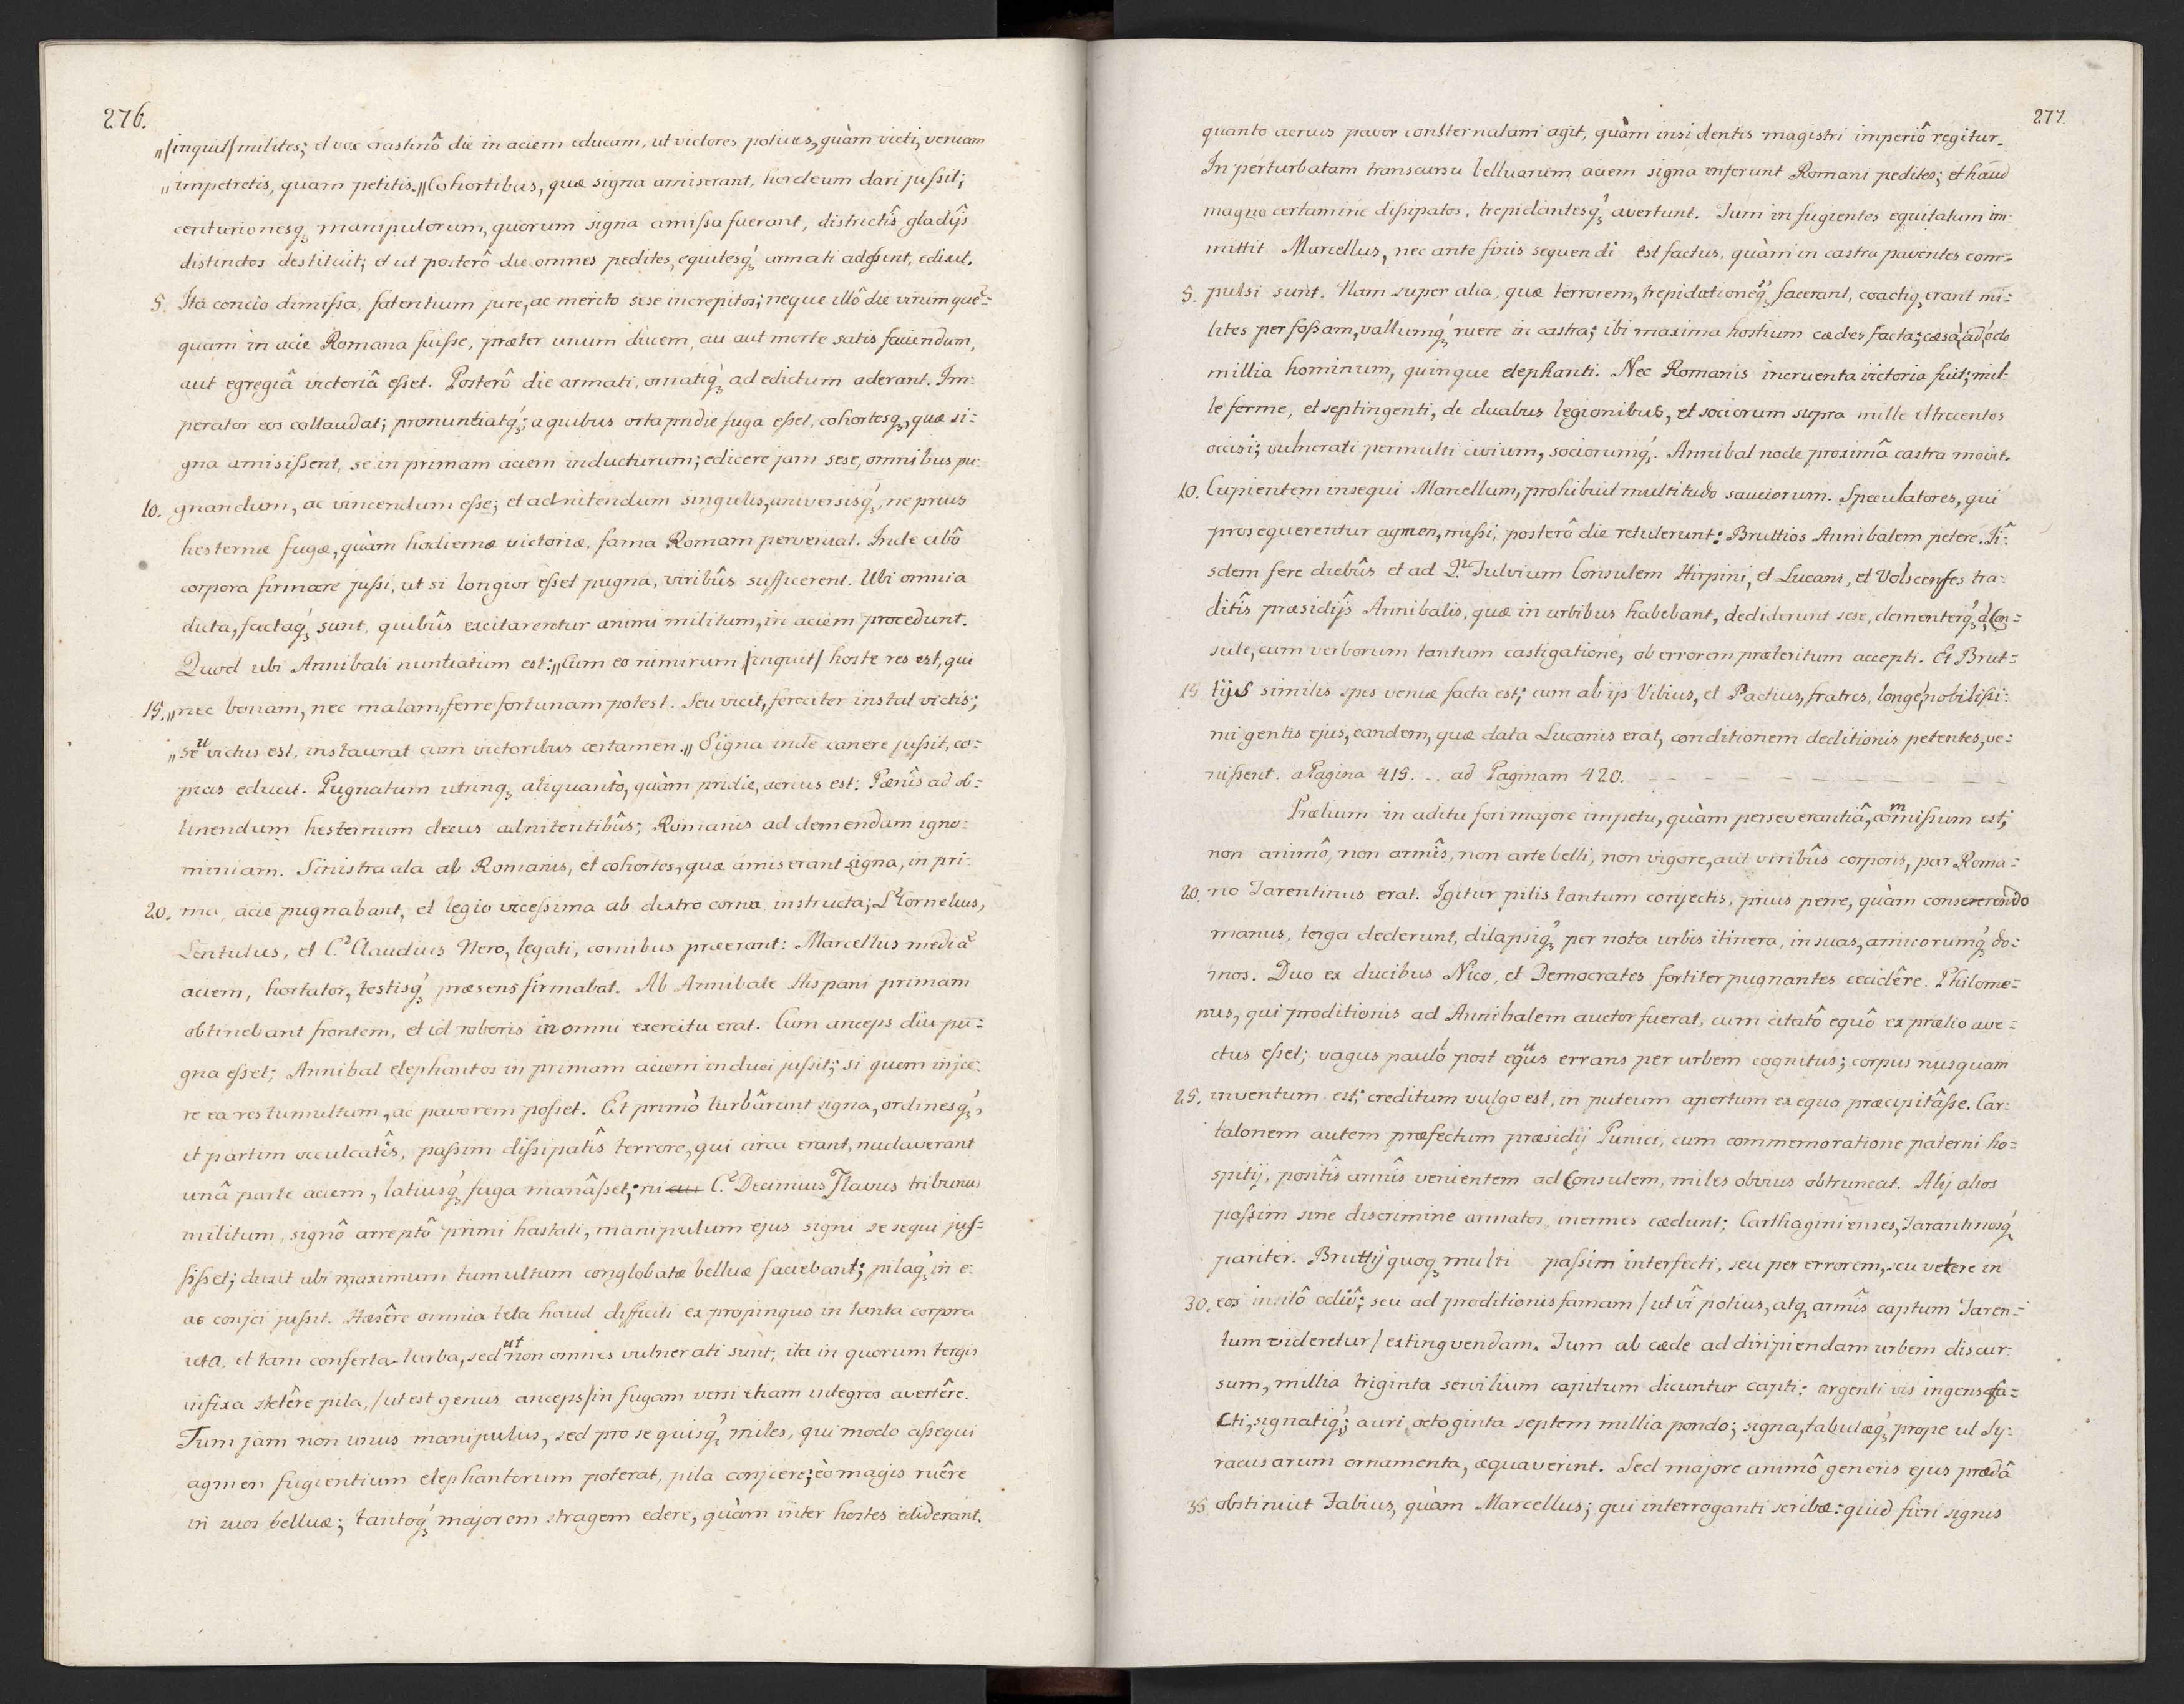 276.
„/inquit/ milites; et vos crastinô die in aciem educam, ut victores potius, quàm victi, veniam
„impetretis, quam petitis.„ Cohortibus, quæ signa amiserant, hordeum dari jussit;
centurionesq, manipulorum, quorum signa amissa fuerant, districtîs gladijs
distinctos destituit; et ut posterô die omnes pedites, equitesq́, armati adessent, edixit.
5. Ita concio dimissa, fatentium jure, ac merito sese increpitos; neque illô die virum què-
quam in acie Romana fuisse, præter unum ducem, cui aut morte satis faciendum,
aut egregiâ victoriâ esset. Posterô die armati, ornatiq́, ad edictum aderant. Im-
perator eos collaudat; pronuntiatq́,; a quibus orta pridie fuga esset, cohortesq, quæ si-
gna amisissent, se in primam aciem inducturum; edicere jam sese, omnibus pu-
10. gnandum, ac vincendum esse; et adnitendum singulis, universisq́, ne prius
hesternæ fugæ, quàm hodiernæ victoriæ, fama Romam perveniat. Inde cibô
corpora firmare jussi, ut si longior esset pugna, viribûs sufficerent. Ubi omnia
dicta, factaq́, sunt, quibûs excitarentur animi militum, in aciem procedunt.
Quod ubi Annibali nuntiatum est: „Cum eo nimirum /inquit/ hoste res est, qui
15. „nec bonam, nec malam, ferre fortunam potest. Seu vicit, ferociter instat victis;
„seu victus est, instaurat cum victoribus certamen.„ Signa inde canere jussit, co-
pias educit. Pugnatum utrinq, aliquantò, quàm pridie, acrius est: Pœnîs ad ob-
tinendum hesternum decus adnitentibûs; Romanis ad demendam igno-
miniam. Sinistra ala ab Romanis, et cohortes, quæ amiserant signa, in pri-
20. ma, acie pugnabant, et legio vicessima ab dextro cornu, instructa; L. Cornelius,
Lentulus, et C. Claudius Nero, legati, cornibus præerant: Marcellus mediã
aciem, hortator, testisq́, præsens firmabat. Ab Annibale Hispani primam
obtinebant frontem, et id roboris in omni exercitu erat. Cum anceps diu pu-
gna esset; Annibal elephantos in primam aciem induci jussit; si quem injce-
re ea res tumultum, ac pavorem posset. Et primò turbârunt signa, ordinesq́,
et partim occulcatîs, passim dissipatîs terrore, qui circa erant, nudaverant
unâ parte aciem, latiusq́, fuga manâsset; ni C. Decimius Flavus tribunus
militum, signô arreptô primi hastati, manipulum ejus signi se sequi jus-
sisset; duxit ubi maximum tumultum conglobatæ belluæ faciebant; pilaq́, in e-
as conjci jussit. Hæsêre omnia tela haud difficili ex propinquo in tanta corpora
icta, et tam conferta turba, sed ut non omnes vulnerati sunt; ita in quorum tergis
infixa stetêre pila, /ut est genus anceps/ in fugam versi etiam integros avertêre.
Tum jam non unus manipulus, sed pro se quisq́, miles, qui modo assequi
agmen fugientium elephantorum poterat, pila conjcere; eò magis ruêre
in suos belluæ; tantoq́, majorem stragem edere, quàm inter hostes ediderant.
277.
quanto acrius pavor consternatam agit, quàm insidentis magistri imperiô regitur.
In perturbatam transcursu belluarum aciem signa inferunt Romani pedites; et haud
magno certamine dissipatos, trepidantesq́, avertunt. Tum in fugientes equitatum im-
mittit Marcellus, nec ante finis sequendi est factus, quàm in castra paventes com-
5. pulsi sunt. Nam super alia, quæ terrorem, trepidationeq́, facerant, coactiq, erant mi-
lites per fossam, vallumq́, ruere in castra; ibi maxima hostium cædes facta; cæsa, ad octo
millia hominum, quinque elephanti. Nec Romanis incruenta victoria fuit; mil-
le ferme, et septingenti, de duabus legionibus, et sociorum supra mille et trecentos
occisi; vulnerati permulti civium, sociorumq́,. Annibal nocte proximâ castra movit.
10. Cupientem insequi Marcellum, prohibuit multitudo sauciorum. Speculatores, qui
prosequerentur agmen, missi, posterô die retulerunt: Bruttios Annibalem petere. Iî-
sdem fere diebûs et ad Q. Fulvium Consulem Hirpini, et Lucani, et Volscentes tra-
ditîs præsidijs Annibalis, quæ in urbibus habebant, dediderunt sese, clementerq́, a Con-
sule, cum verborum tantum castigatione, ob errorem præteritum accepti. Et Brut-
15 tijs similis spes veniæ facta est; cum ab ijs Vibius, et Pactius, fratres, longe nobilissi-
mi gentis ejus, eandem, quæ data Lucanis erat, conditionem deditionis petentes, ve-
nissent. a Pagina 415. .. ad Paginam 420. – – – – – – – – –
Prælium in aditu fori majore impetu, quàm perseverantiâ, commissum est;
non animô, non armîs, non arte belli, non vigore, aut viribûs corporis, par Roma-
20. no Tarentinus erat. Igitur pilis tantum conjectis, prius pene, quàm consererendo
manus, terga dederunt, dilapsiq́, per nota urbis itinera, in suas, amicorumq́, do-
mos. Duo ex ducibus Nico, et Democrates fortiter pugnantes cecidêre. Philome-
nus, qui proditionis ad Annibalem auctor fuerat, cum citatô equô ex prælio ave-
ctus esset; vagus paulò post equus errans per urbem cognitus; corpus nusquam
25. inventum est; creditum vulgo est, in puteum apertum ex equo præcipitâsse. Car-
talonem autem præfectum præsidij Punici, cum commemoratione paterni ho-
spitij, positîs armîs venientem ad Consulem, miles obvius obtruncat. Alij alios
passim sine discrimine armatos, inermes cædunt; Carthaginienses, Tarantinosq́,
pariter. Bruttij quoq, multi passim interfecti, seu per errorem, seu vetere in
30. eos insitô odiô; seu ad proditionis famam /ut vî potius, atq, armîs captum Taren-
tum videretur/ extingvendam. Tum ab cæde ad diripiendam urbem discur-
sum, millia triginta servilium capitum dicuntur capti: argenti vis ingens fa-
cti, signatiq́,; auri octoginta septem millia pondo; signa, tabulæq́, prope ut Sy-
racusarum ornamenta, æquaverint. Sed majore animô generis ejus prædâ
35 obstinuit Fabius, quàm Marcellus; qui interroganti scribæ: quid fieri signis